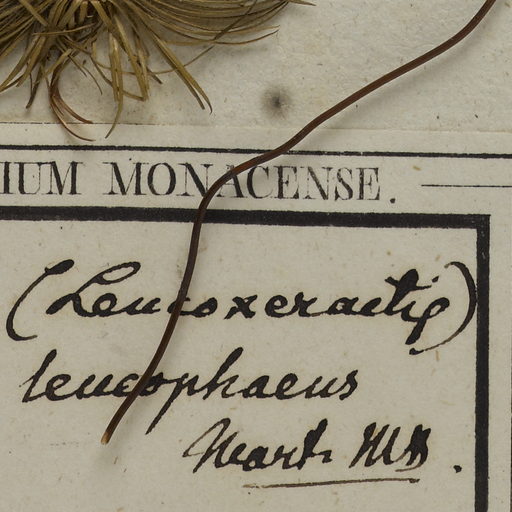 IUM MONACENSE.
(Leucoxeractis)
leucophaeus
Mart. MS.